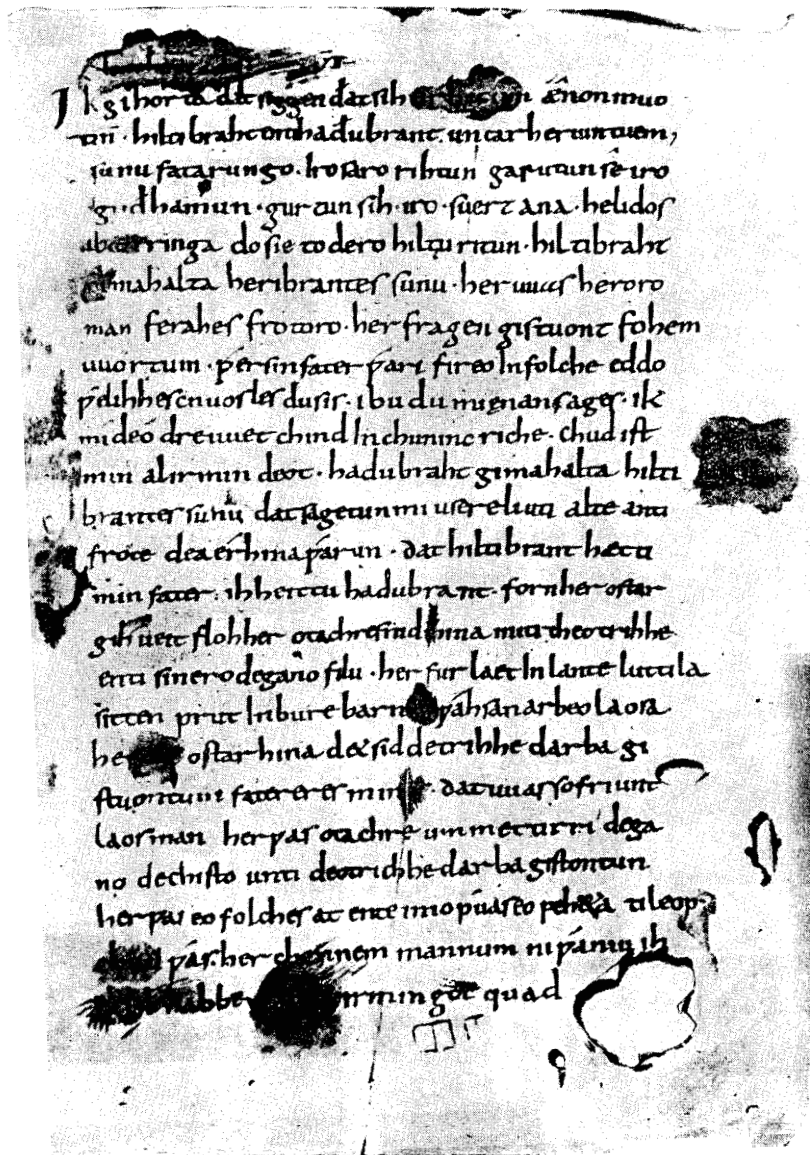 Ik gihorta đat seggen đat sih ænon muo
tin · hiltibraht enti hađubrant · untar heriuntuem,
sunu fatarungo · iro saro rihtun garutun sê iro
gu·đhamun · gurtun sih · iro · suert ana · helidos
ubar ringa do sie to dero hiltu ritun · hiltibraht
gimahalta heribrantes sunu · her uuas heroro
man ferahes frotoro · her fragen gistuont fohem
uuortum · ƿér sin fater ƿári fireo In folche eddo
ƿélihhes cnuosles du sis · ibu du mi enan sages · ik
mi deo dre uuet chind In chuninc riche · chud ist
min alirmin deot · hadubraht gimahalta hilti
brantes sunu dat sagetun mi usere liuti alte anti
frote dea érhina ƿárun · dat hiltibrant hætti
min fater · ih heittu hadubrant · forn her ostar
gihueit floh her otachres nid hina miti theotrihhe
enti sinero degano filu · her fur laet In lante luttila
sitten prut In bure barn ƿáhsan arbeo laosa
he ostar hina d& sid detrihhe darba gi
stuontum fatereres min · dat uuas so friunt
laos man her ƿas otachre ummettirri dega
no dechisto unti deotrichhe darba gistontun
her ƿas eo folches at ente imo ƿúas eo peheta ti leop·
ƿás · her chonnem mannum ni ƿániu ih
habbe irmingot quad